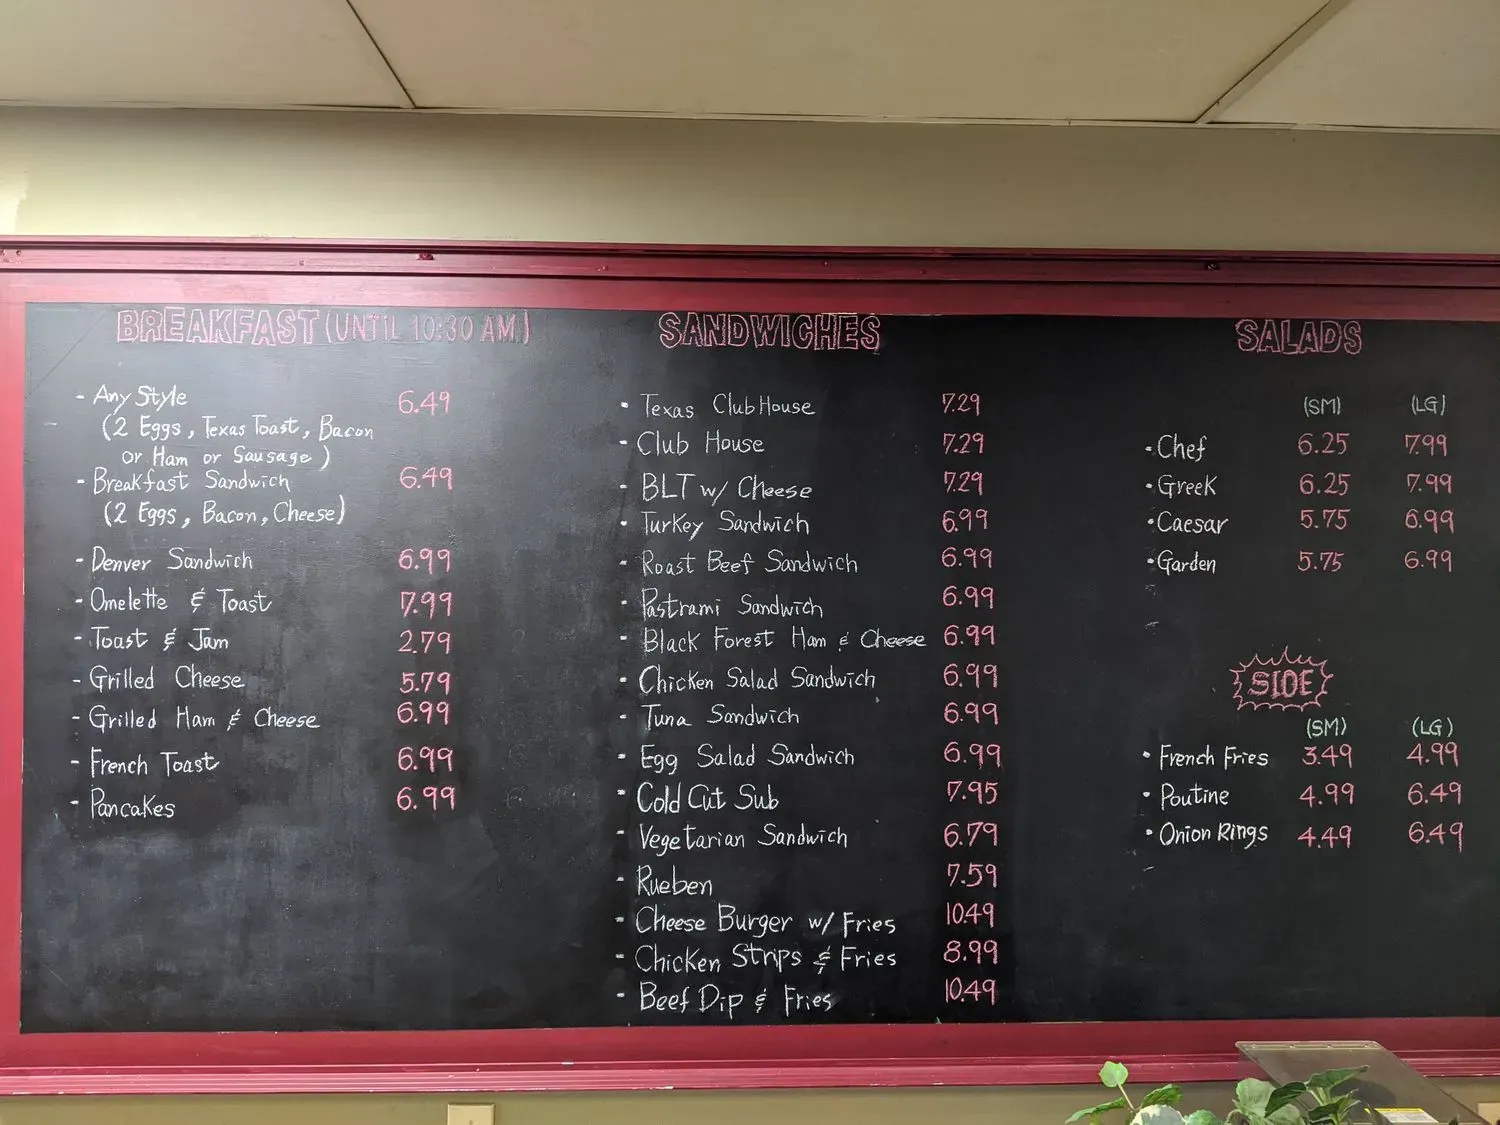 BREAKFAST (UNTIL 10:30 AM)
- Any Style 6.49
(2 Eggs, Texas Toast, Bacon
or Ham or Sausage)
- Breakfast Sandwich 6.49
(2 Eggs, Bacon, Cheese)
- Denver Sandwich 6.99
- Omelette & Toast 7.99
- Toast & Jam 2.79
- Grilled Cheese 5.79
- Grilled Ham & Cheese 6.99
- French Toast 6.99
- Pancakes 6.99
SANDWICHES
- Texas ClubHouse 7.29
- Club House 7.29
- BLT w/ Cheese 7.29
- Turkey Sandwich 6.99
- Roast Beef Sandwich 6.99
- Pastrami Sandwich 6.99
- Black Forest Ham & Cheese 6.99
- Chicken Salad Sandwich 6.99
- Tuna Sandwich 6.99
- Egg Salad Sandwich 6.99
- Cold Cut Sub 7.95
- Vegetarian Sandwich 6.79
- Rueben 7.59
- Cheese Burger w/ Fries 10.49
- Chicken Strips & Fries 8.99
- Beef Dip & Fries 10.49
SALADS
(SM) (LG)
• Chef 6.25 7.99
• Greek 6.25 7.99
• Caesar 5.75 6.99
• Garden 5.75 6.99
SIDE
(SM) (LG)
• French Fries 3.49 4.99
• Poutine 4.99 6.49
• Onion Rings 4.49 6.49